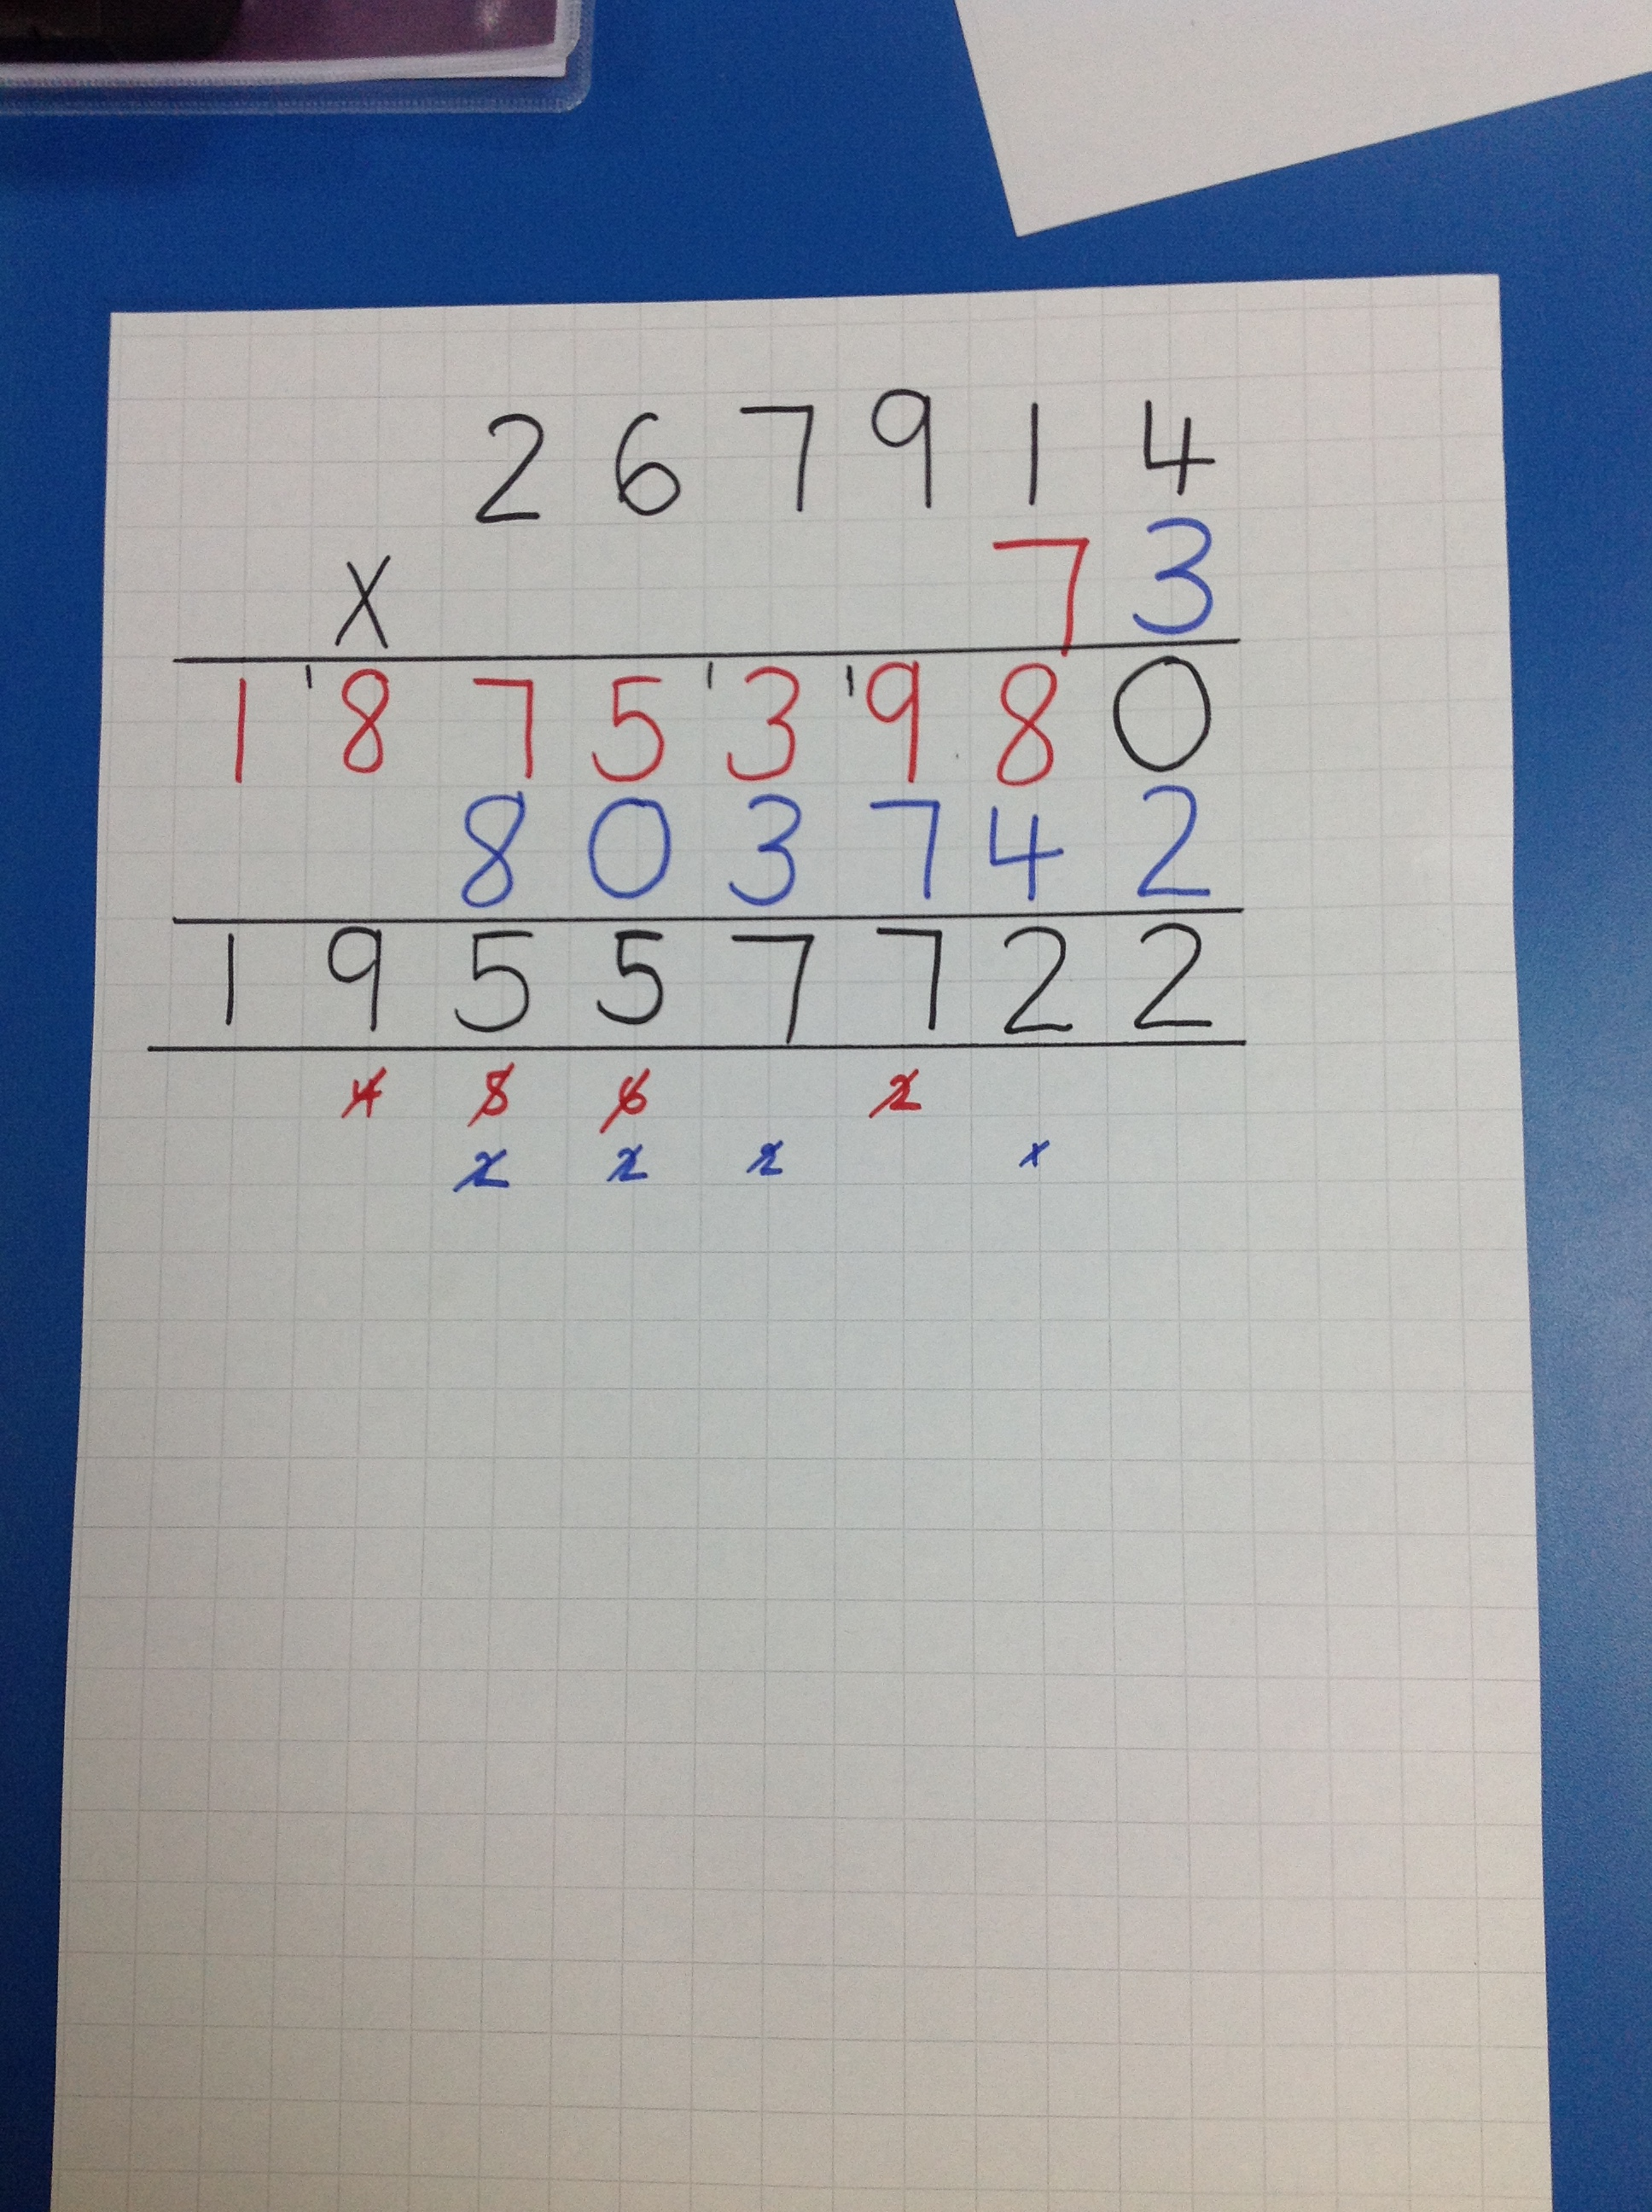 267914
x 73
1'875'3'980
803742
19557722
4 5 6 2
2 2 2 1